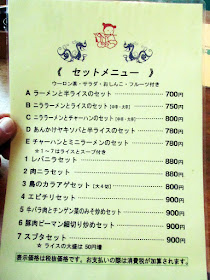 《 セットメニュー 》
ウーロン茶・サラダ・おしんこ・フルーツ付き
A ラーメンと半ライスのセット 700円
B ニララーメンとライスのセット 750円
C ニララーメンとチャーハンのセット 800円
D あんかけヤキソバと半ライスのセット 780円
E チャーハンとミニラーメンのセット 780円
★1~7はライスとスープ付き
1 レバニラセット 880円
2 肉ニラセット 880円
3 鳥のカラアゲセット【大4切】 880円
4 エビチリセット 900円
5 牛バラ肉とチンゲン菜のみそ炒めセット 900円
6 豚肉ピーマン細切り炒めセット 900円
7 スブタセット 900円
★ライスの大盛は 50円増
表示価格は税抜価格です。お支払いの際は消費税が加算されます。